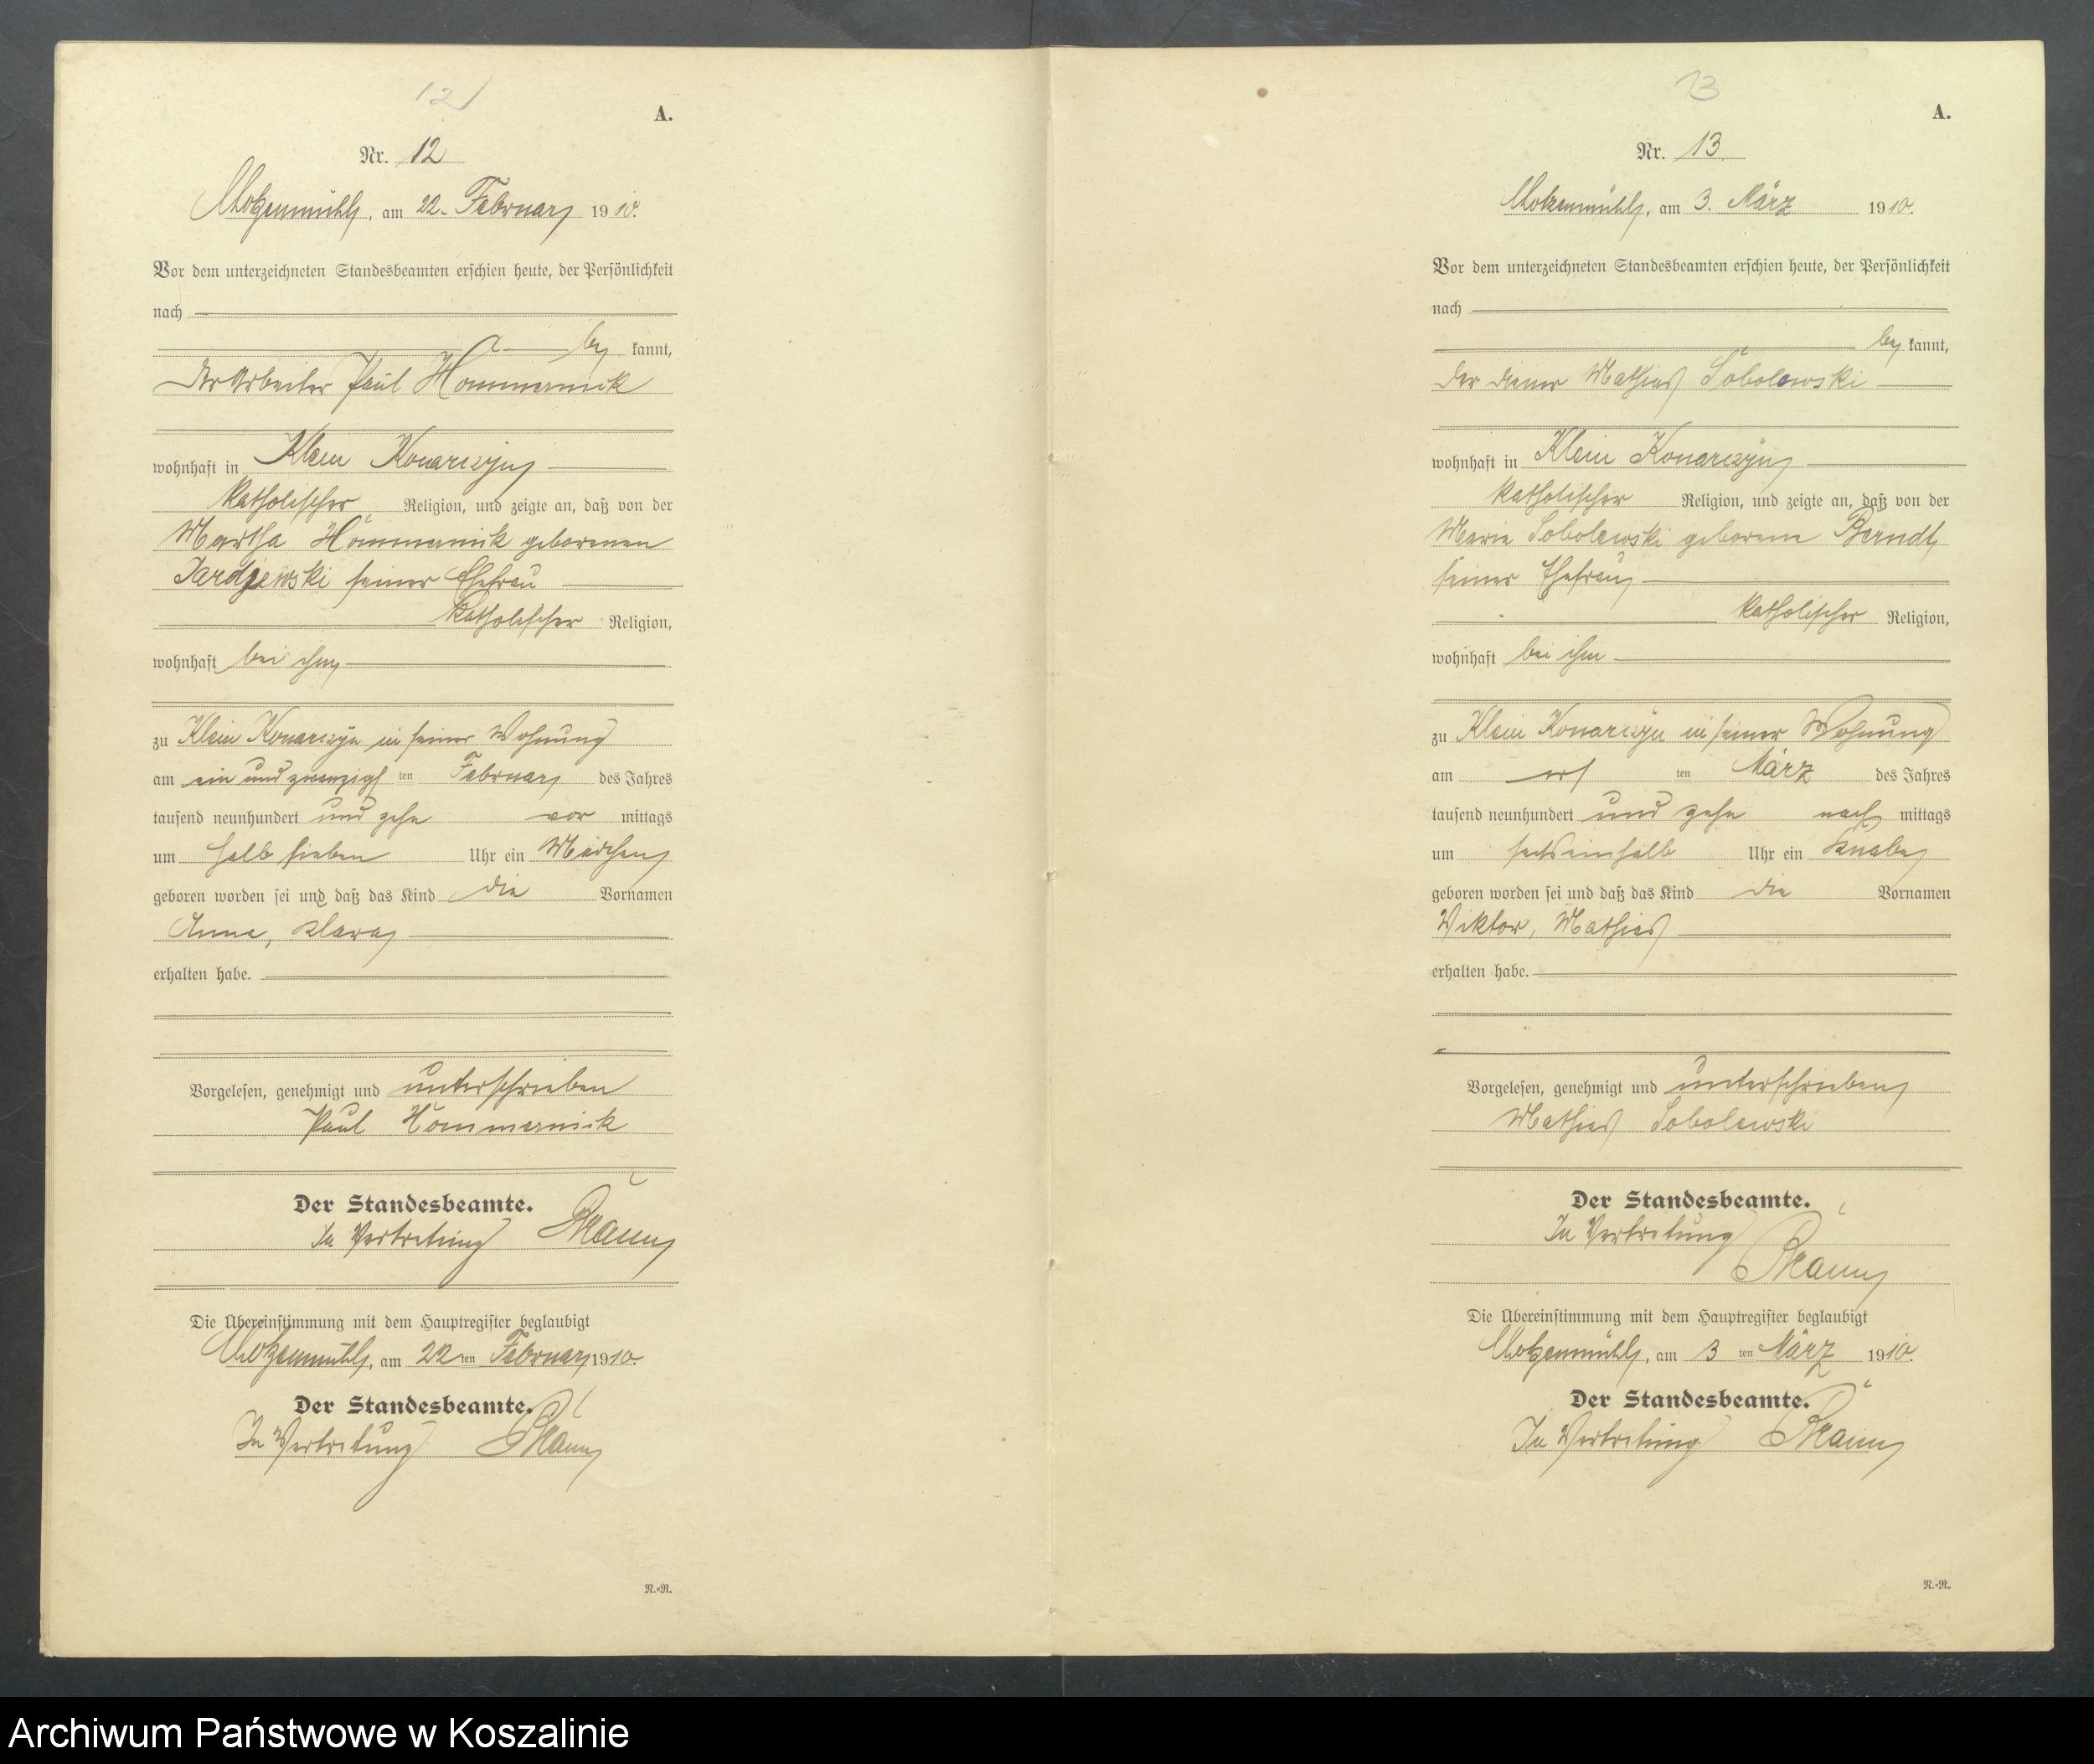 12
A.
Nr. 12
Motzenmühl, am 22. Februar 1910.
Vor dem unterzeichneten Standesbeamten erschien heute, der Persönlichkeit
nach
be kannt,
Der Arbeiter Paul Hommernick
wohnhaft in Klein Konarczyn
katholischer Religion, und zeigte an, daß von der
Martha Hommernik geborenen
seiner Ehefrau
katholischer Religion,
wohnhaft bei ihm
zu Klein Konarczyn in seiner Wohnung
am ein und zwanzigsten Februar des Jahres
tausend neunhundert und zehn vor mittags
um halb sieben Uhr ein Mädchen
geboren worden sei und daß das Kind die Vornamen
Anna, Klara
erhalten habe.
Vorgelesen, genehmigt und unterschrieben
Paul Hommernick
Der Standesbeamte.
In Vertretung
Die Übereinstimmung mit dem Hauptregister beglaubigt
Motzenmühl, am 22ten Februar 1910.
Der Standesbeamte.
In Vertretung
N.-R.
13
A.
Nr. 13
Motzenmühl, am 3. März 1910.
Vor dem unterzeichneten Standesbeamten erschien heute, der Persönlichkeit
nach
be kannt,
der Diener Mathias Sobolewski
wohnhaft in Klein Konarczyn
katholischer Religion, und zeigte an, daß von der
Marie Sobolewski geborene Berndt
seiner Ehefrau
katholischer Religion,
wohnhaft bei ihm
zu Klein Konarczyn in seiner Wohnung
am ersten März des Jahres
tausend neunhundert und zehn nach mittags
um sechseinhalb Uhr ein Knabe
geboren worden sei und daß das Kind die Vornamen
Wiktor, Mathias
erhalten habe.
Vorgelesen, genehmigt und unterschrieben
Mathias Sobolewski
Der Standesbeamte.
In Vertretung
Die Übereinstimmung mit dem Hauptregister beglaubigt
Motzenmühl, am 3ten März 1910.
Der Standesbeamte.
In Vertretung
N.-R.
Archiwum Państwowe w Koszalinie